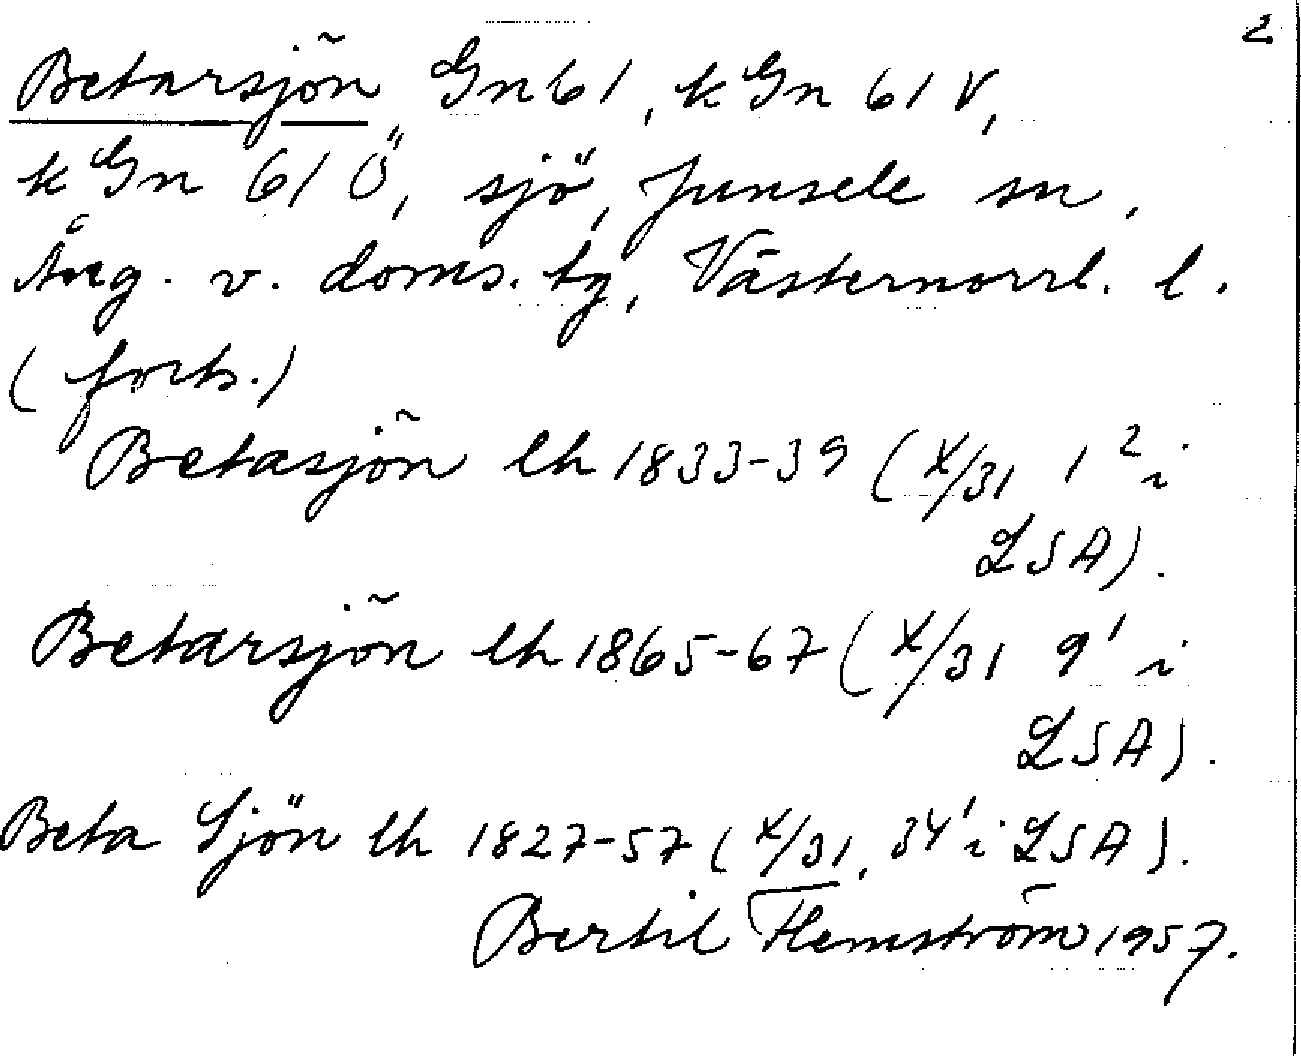 2
Betarsjön Gn 61, kGn 61 V,
kGn 61 Ö, sjö, Junsele sn,
Ång. v. doms. tg, Västernorrl. l.
(forts.)
Betasjön lh 1833-39 (X/31 1² i
LSA).
Betarsjön lh 1865-67 (X/31 9' i
LSA).
Beta Sjön lh 1827-57 (X/31, 34' i LSA).
Bertil Flemström 1957.